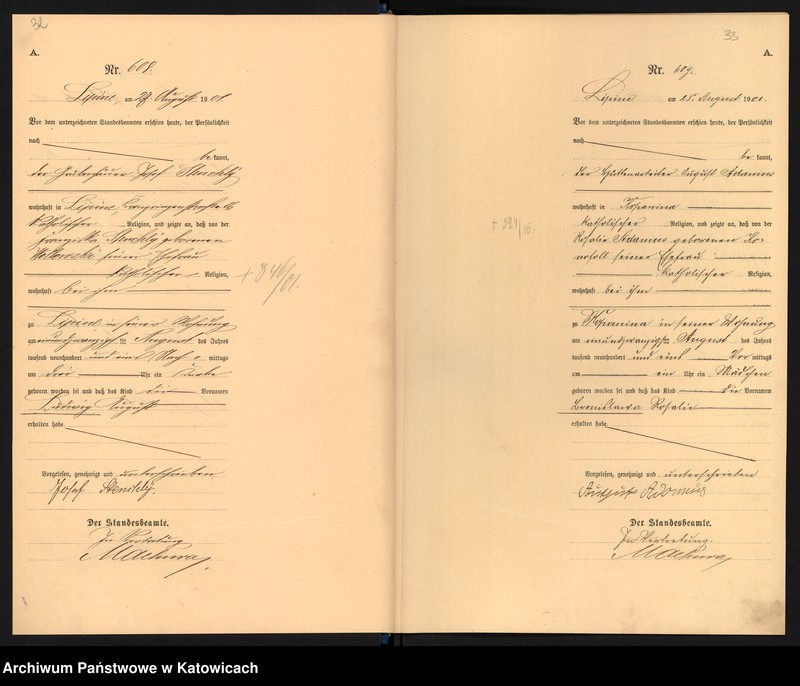 32
A.
Nr. 608.
Lipine, am 27. August 1901.
Vor dem unterzeichneten Standesbeamten erschien heute, der Persönlichkeit
nach
be kannt,
der Josef
wohnhaft in Lipine,
katholischer Religion, und zeigte an, daß von der
geborenen
seiner Ehefrau
katholischer Religion,
wohnhaft bei ihm
zu Lipine in seiner Wohnung
am August des Jahres
tausend neunhundert und eins Nach mittags
um drei Uhr ein Knabe
geboren worden sei und daß das Kind die Vornamen
Ludwig August
erhalten habe.
Vorgelesen, genehmigt und unterschrieben
Josef
Der Standesbeamte.
In Vertretung
+ 346/01.
33
A.
Nr. 609.
Lipine am 28. August 1901.
Vor dem unterzeichneten Standesbeamten erschien heute, der Persönlichkeit
nach
be kannt,
der Hüttenarbeiter August Adamus
wohnhaft in Kopanina
katholischer Religion, und zeigte an, daß von der
Rosalie Adamus geborenen
seiner Ehefrau
katholischer Religion,
wohnhaft bei ihm
zu Kopanina in seiner Wohnung
am August des Jahres
tausend neunhundert und eins Vor mittags
um ein Uhr ein Mädchen
geboren worden sei und daß das Kind die Vornamen
Bronislawa Rosalie
erhalten habe.
Vorgelesen, genehmigt und unterschrieben
August Adamus
Der Standesbeamte.
In Vertretung.
Archiwum Państwowe w Katowicach